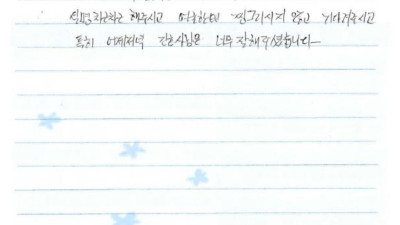 해주시고 찡그리시지 않고 기다려주시고
특히 어제저녁 간호사님은 너무 잘해주셨습니다~